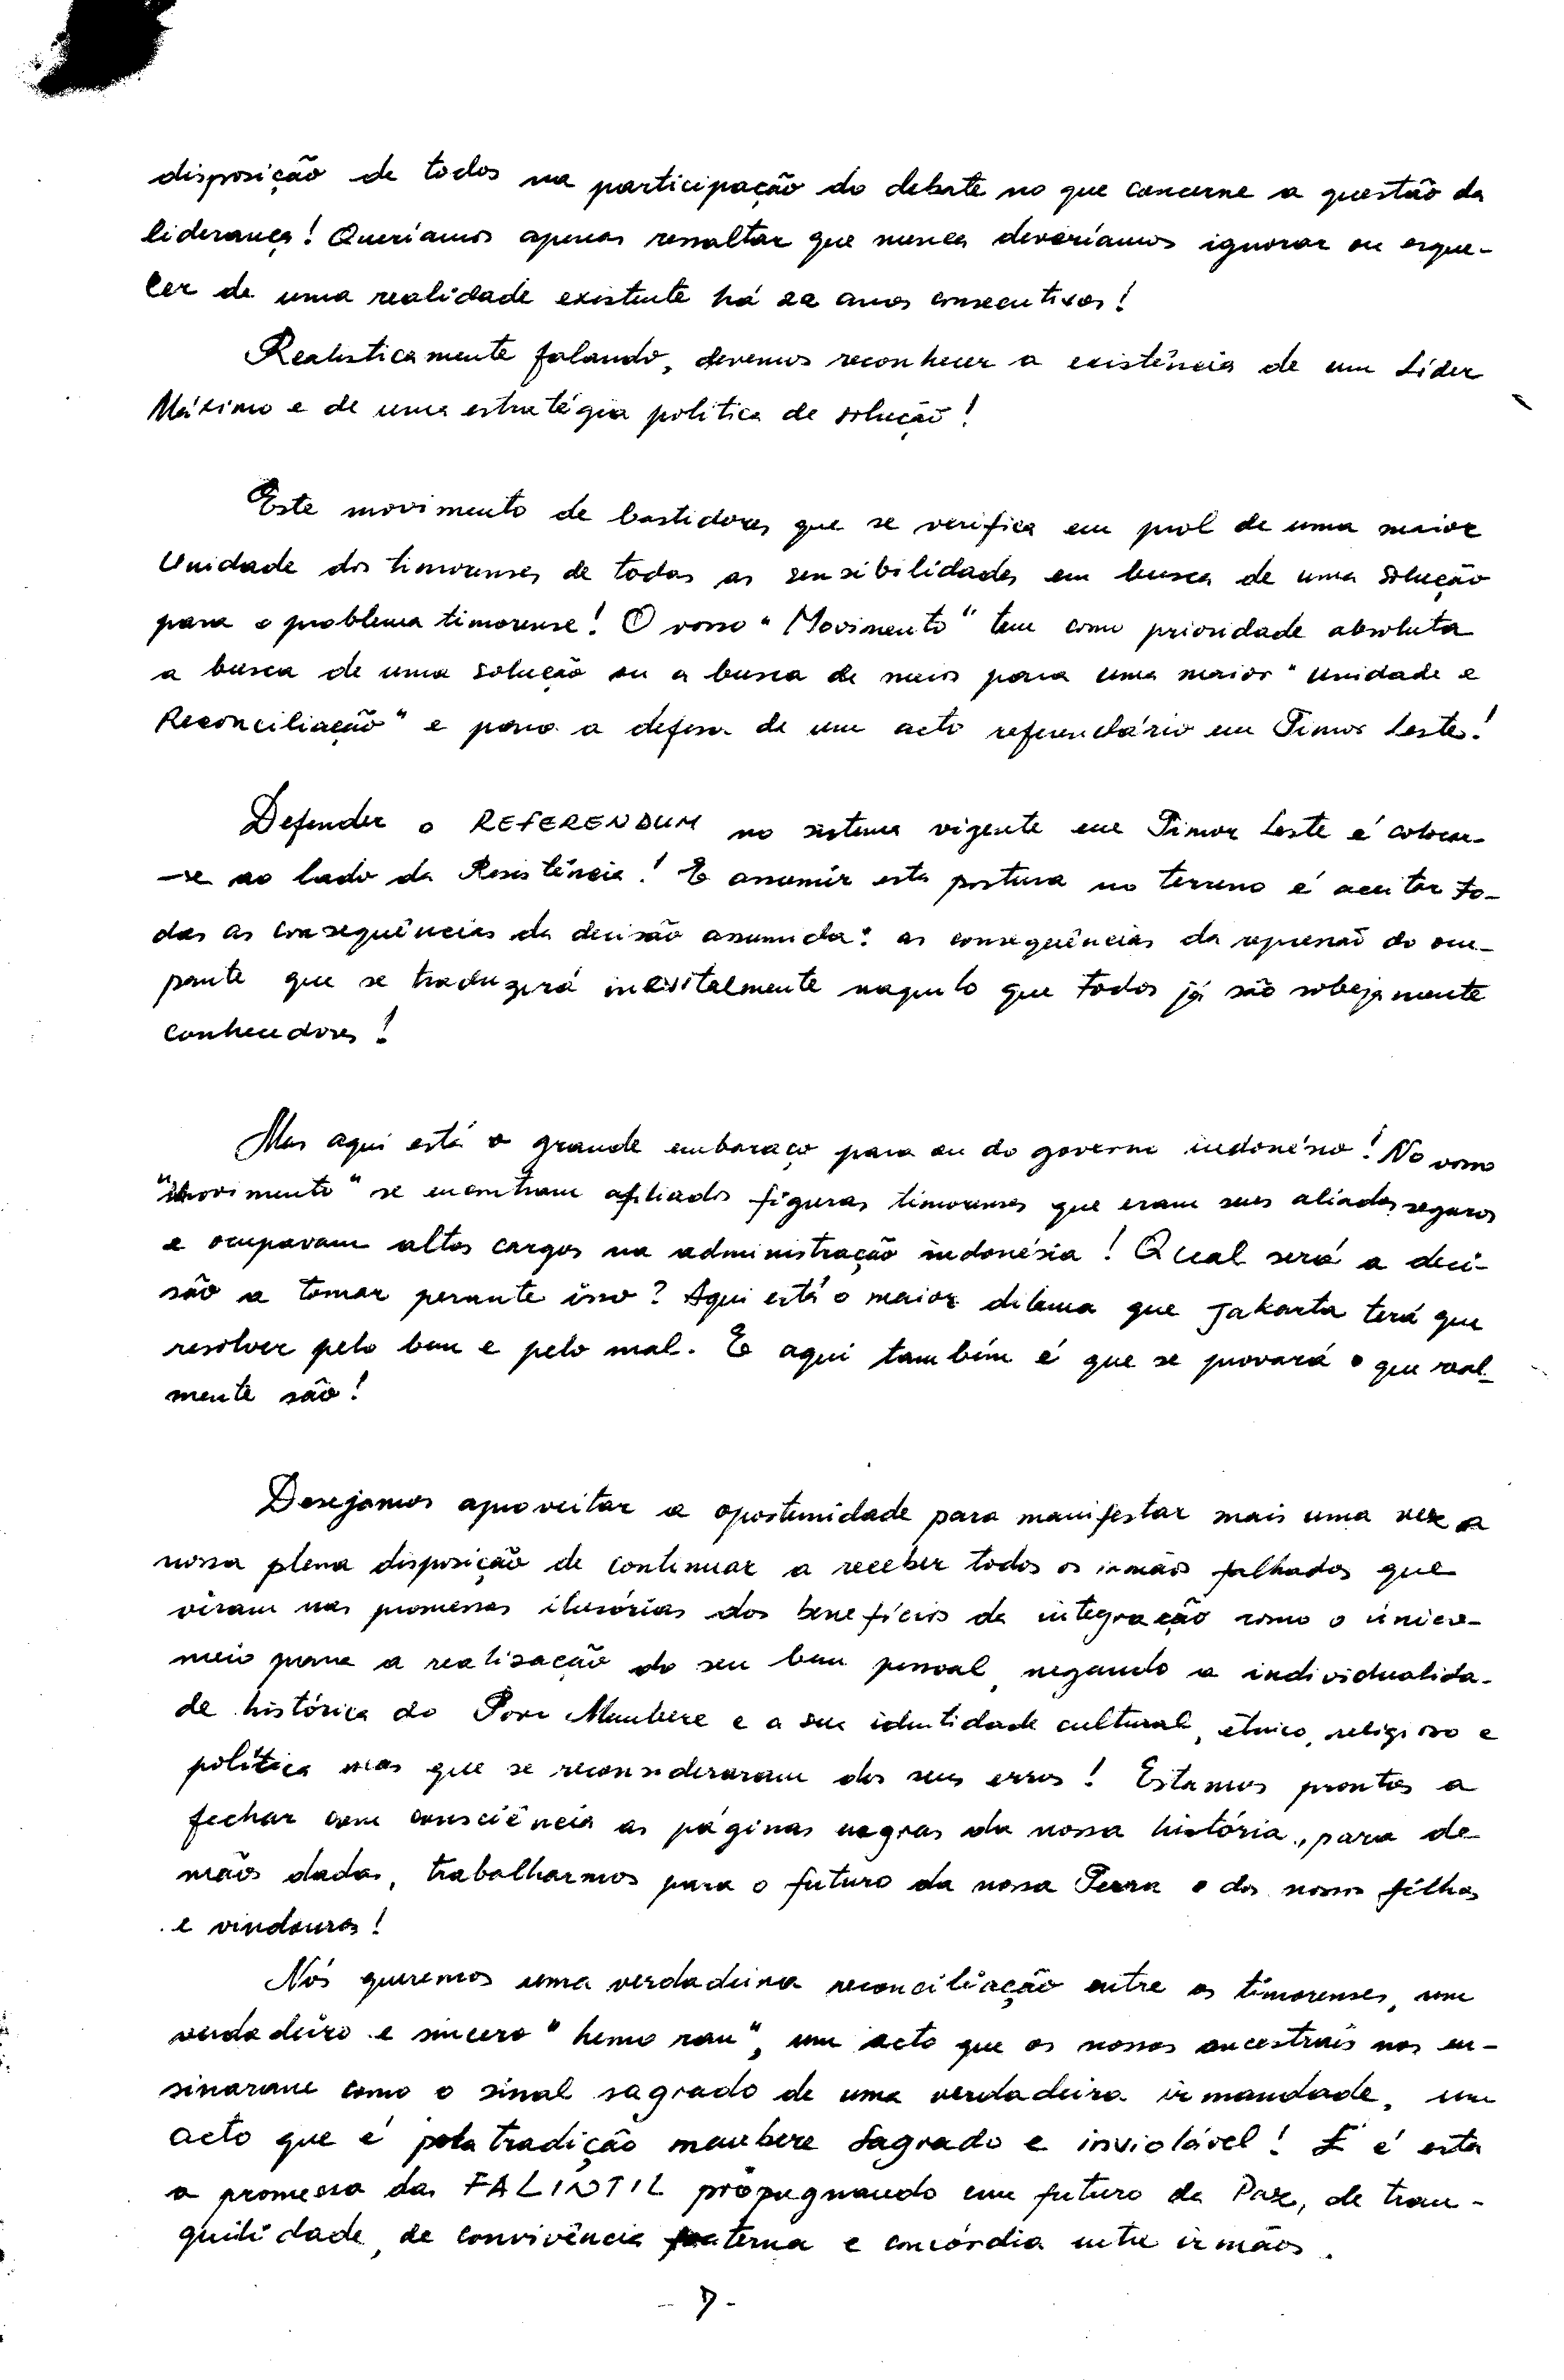 disposição de todos na participação do debate no que concerne a questão da
liderança! Queríamos apenas ressaltar que nunca deveríamos ignorar ou esque-
cer de uma realidade existente há 22 anos consecutivos!
Realisticamente falando, devemos reconhecer a existência de um Líder
Máximo e de uma estratégia politica de solução!
Este movimento de bastidores que se verifica em prol de uma maior
Unidade dos timorenses de todas as sensibilidades em busca de uma solução
para o problema timorense! O vosso "Movimento" tem como prioridade absoluta
a busca de uma solução ou a busca de meios para uma maior "Unidade e
Reconciliação" e para a defesa de um acto referendário em Timor Leste!
Defender o REFERENDUM no sistema vigente em Timor Leste é colocar-
-se ao lado da Resistência! E assumir esta postura no terreno é aceitar to-
das as consequências da decisão assumida: as consequências da repressão do ocu-
pante que se traduzirá inevitalmente naquilo que todos já são sobejamente
conhecedores!
Mas aqui está o grande embaraço para ou do governo indonésio! No vosso
"movimento" se encontram afiliados figuras timorenses que eram seus aliados seguros
e ocupavam altos cargos na administração indonésia! Qual será a deci-
são a tomar perante isso? Aqui está o maior dilema que Jakarta terá que
resolver pelo bem e pelo mal. E aqui também é que se provará o que real-
mente são!
Desejamos aproveitar a oportunidade para manifestar mais uma vez a
nossa plena disposição de continuar a receber todos os irmãos falhados que
viram nas promessas ilusórias dos benefícios da integração como o único
meio para a realisação do seu bem pessoal, negando a individualida-
de histórica do Povo Maubere e a sua identidade cultural, étnico, religioso e
política mas que se reconsideraram dos seus erros! Estamos prontos a
fechar com consciência as páginas negras da nossa história, para de
mãos dadas, trabalharmos para o futuro da nossa Terra e dos nossos filhos
e vindouros!
Nós queremos uma verdadeira reconciliação entre os timorenses, um
verdadeiro e sincero "hemo ran", um acto que os nossos ancestrais nos en-
sinaram como o sinal sagrado de uma verdadeira irmandade, um
acto que é pela tradição maubere Sagrado e inviolável! E é esta
a promessa das FALINTIL propugnando um futuro de Paz, de tran-
quilidade, de convivência fraterna e concórdia entre irmãos.
- 7 -